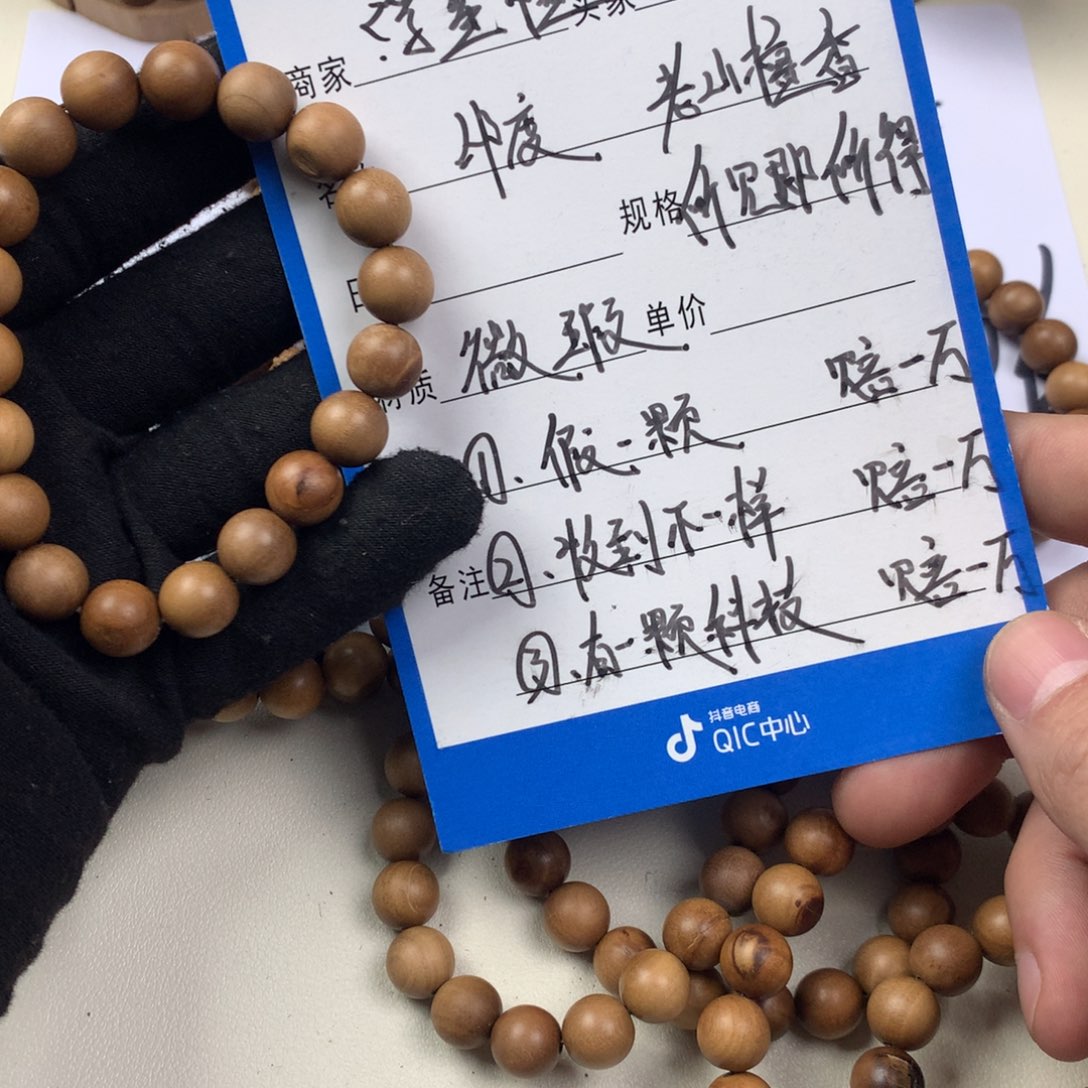 商家 买家
名 印度 老山檀香
规格 所见即所得
日
材质 微瑕 单价
①.假一颗 赔一万
备注 ②.收到不一样 赔一万
③.有一颗科技 赔一万
抖音电商
QIC中心